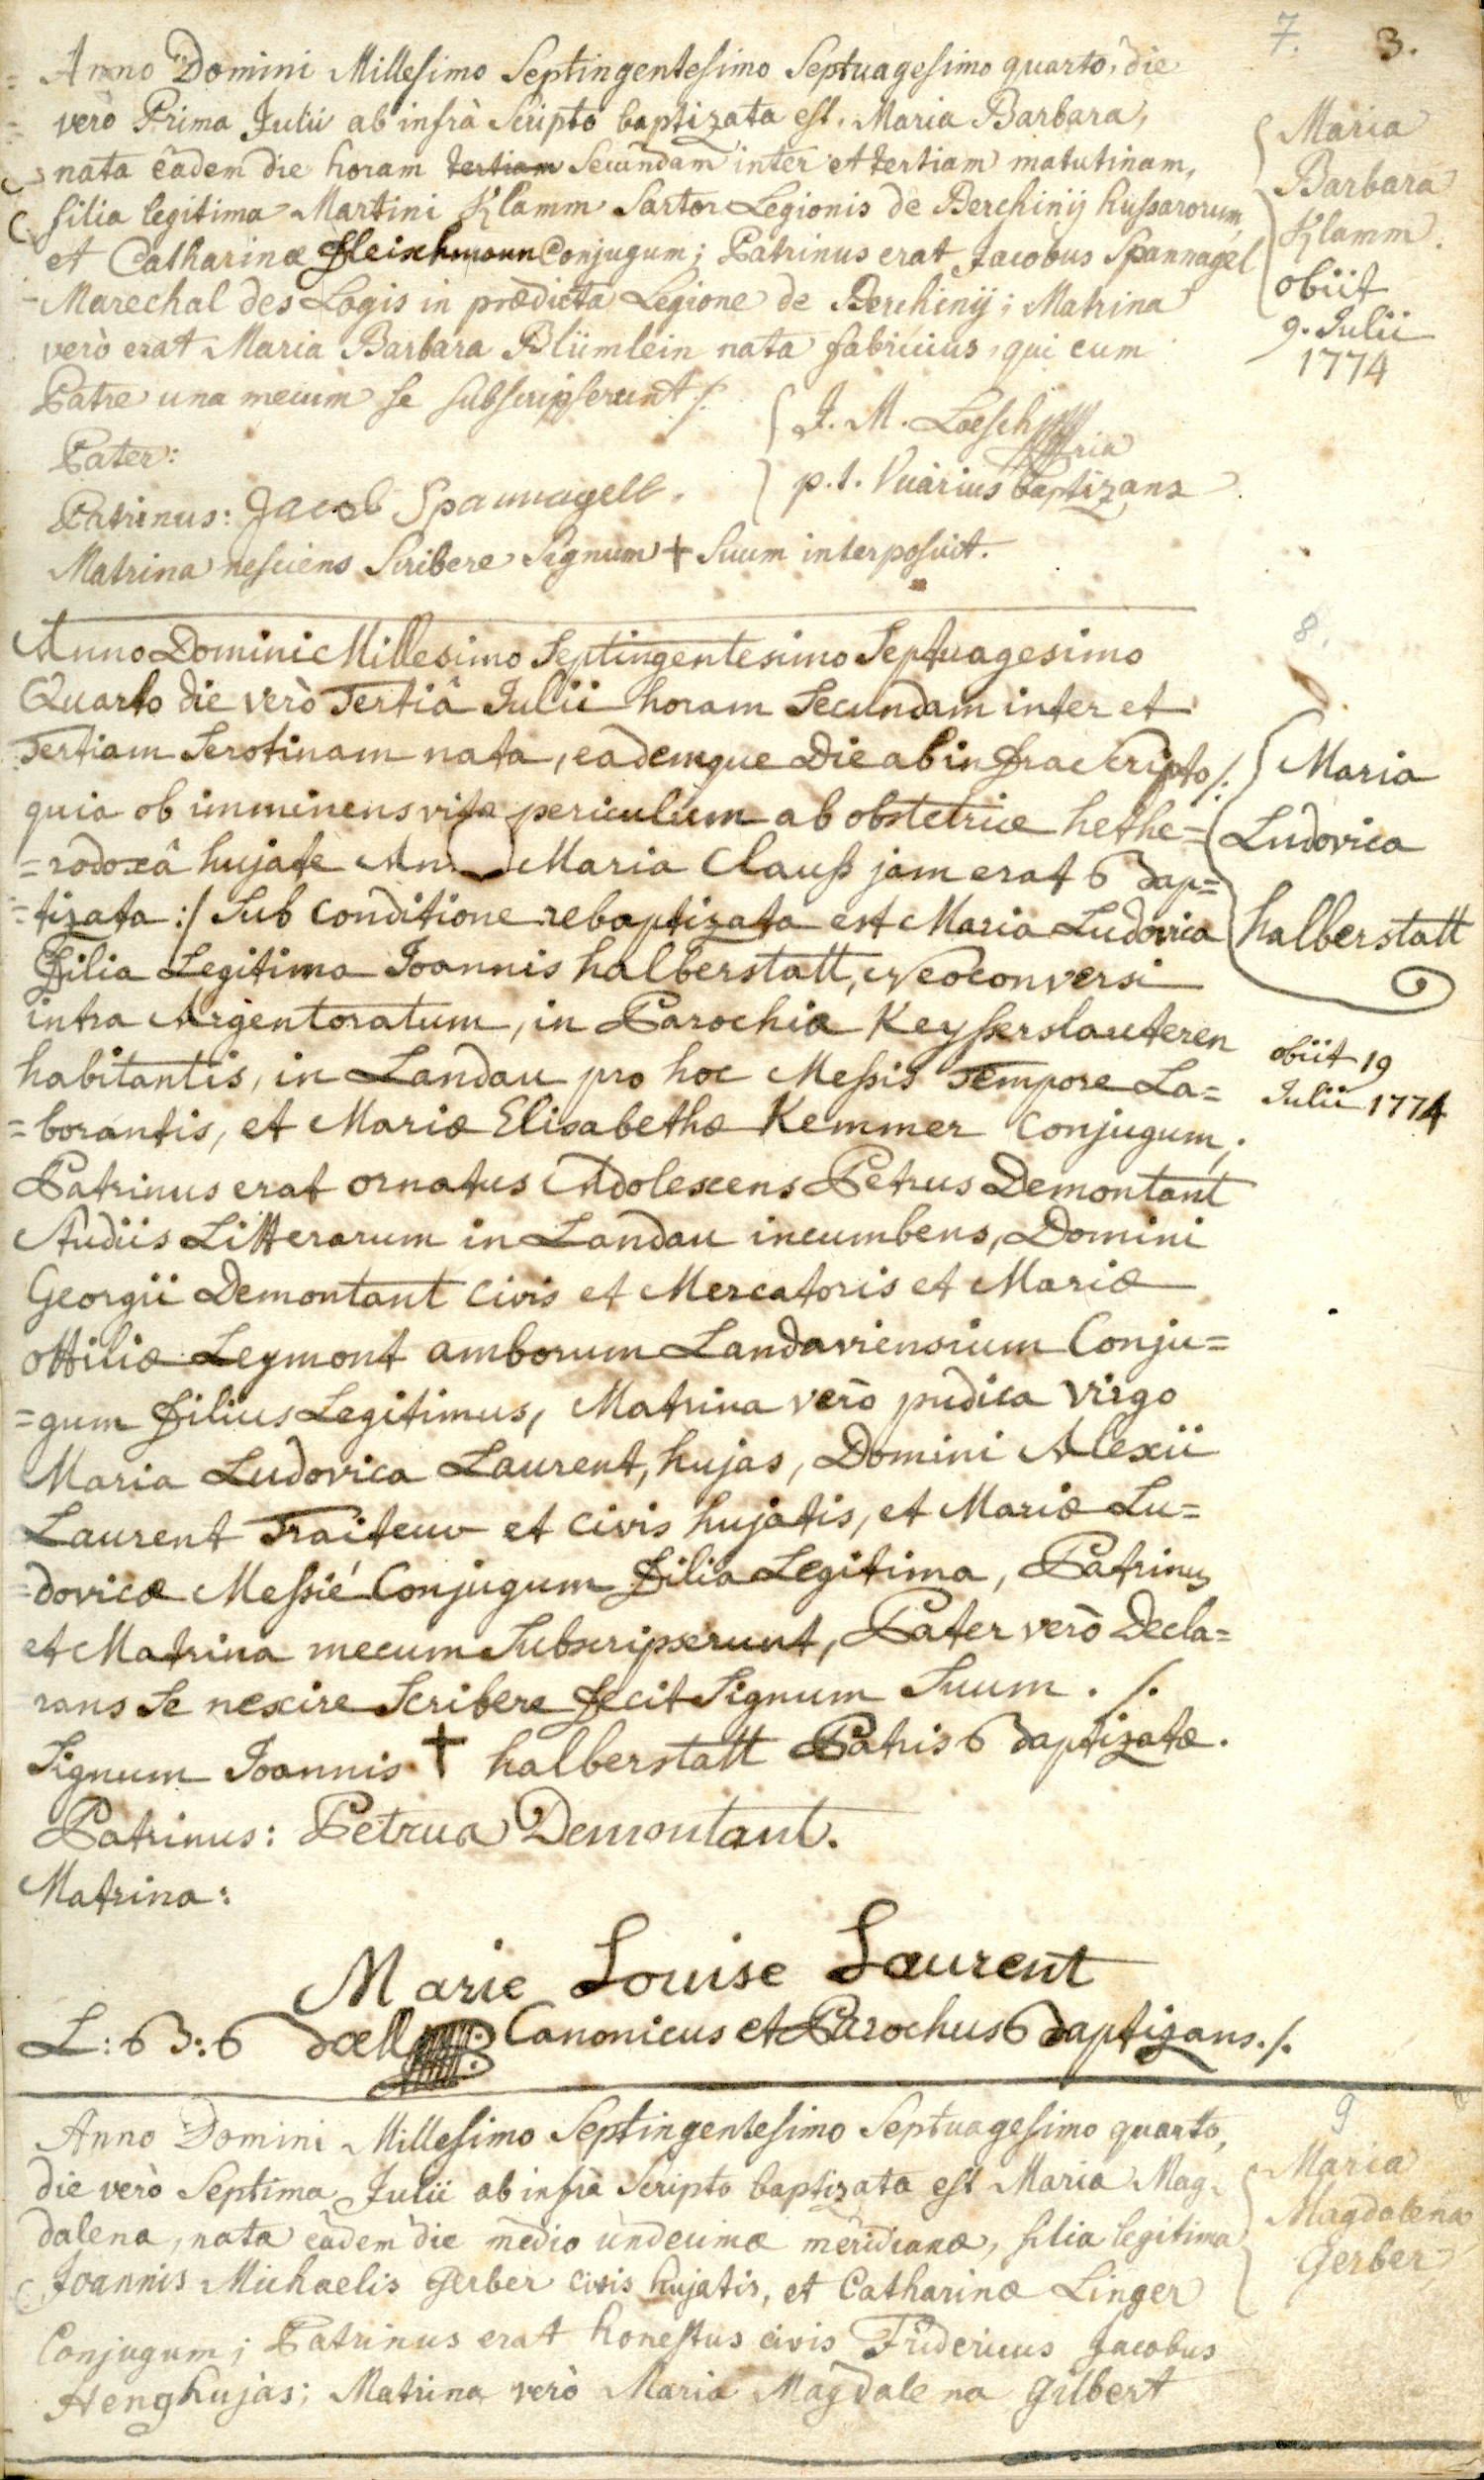 7. 3.
Anno Domini Millesimo Septingentesimo Septuagesimo quarto, die
verò Prima Julii ab infrà Scripto baptizata est, Maria Barbara,
nata eâdem die horam tertiam Secundam inter et tertiam matutinam,
filia legitima Martini Klamm Sartor Legionis de Berchinij hussarorum,
et Catharinæ fleischmann Conjugum; Patrinus erat Jacobus Spannagel
Marechal des Logis in prædicta Legione de Berchinij; Matrina
verò erat Maria Barbara Blümlein nata fabricius, qui cum
Patre una mecum se subscripserunt ./.
Maria
Barbara
Klamm.
obiit
9. Julii
1774
Pater:
J. M. Loesch
p. t. Vicarius baptizans
Patrinus: Jacob Spannagell.
Matrina nesciens Scribere Signum + Suum interposuit.
8.
Anno Domini Millesimo Septingentesimo Septuagesimo
Quarto die verò Tertiâ Julii horam Secundam inter et
Tertiam Serotinam nata, eademque Die ab infra Scripto /:
quia ob imminens vitæ periculum ab obstetrice hethe=
=rodoxâ hujate Maria Clauß jam erat bap=
=tizata :/ Sub conditione rebaptizata est Maria Ludovica
filia Legitima Joannis halberstatt, Neoconversi
intra Argentoratum, in Parochia Keysserslauteren
habitantis, in Landau pro hoc Messis Tempore La=
=borantis, et Mariæ Elisabethæ Kemmer Conjugum;
Patrinus erat ornatus Adolescens Petrus Demontant
Studiis Litterarum in Landau incumbens, Domini
Georgii Demontant Civis et Mercatoris et Mariæ
ottiliæ Leymont amborum Landaviensium Conju=
=gum filius Legitimus, Matrina verò pudica Virgo
Maria Ludovica Laurent, hujas, Domini Alexii
Laurent Traiteur et Civis hujatis, et Mariæ Lu=
=dovicæ Messié Conjugum filia Legitima, Patrinus
et Matrina mecum Subscripserunt, Pater verò Decla=
rans Se nescire Scribere fecit Signum Suum . /.
Maria
Ludovica
halberstatt
obiit 19
Julii 1774
Signum Joannis + halberstatt Patris baptizatæ.
Patrinus: Petrus Demontant.
Matrina:
Marie Louise Laurent
L: B: Canonicus et Parochus baptizans./.
9
Anno Domini Millesimo Septingentesimo Septuagesimo quarto,
die verò Septima Julii ab infrà Scripto baptizata est Maria Mag-
dalena, nata eâdem die medio undecimæ meridianæ, filia legitima
Joannis Michaelis Gerber civis hujatis, et Catharinæ Linger
Conjugum; Patrinus erat honestus civis Fridericus Jacobus
Heng hujas; Matrina verò Maria Magdalena Gilbert
Maria
Magdalena
Gerber